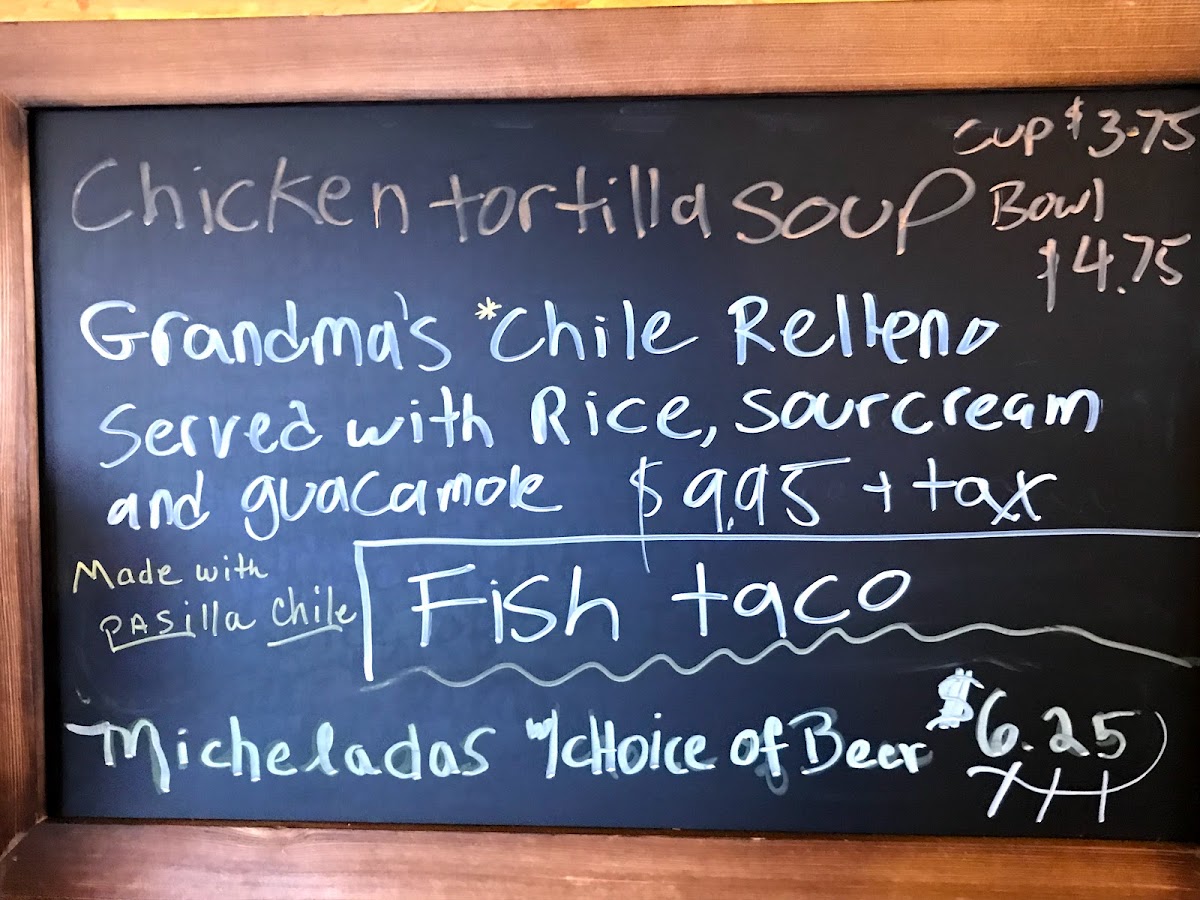 Chicken tortilla soup
cup $3.75
Bowl
$4.75
Grandma's *Chile Relleno
Served with Rice, sour cream
and guacamole $9.95 + tax
Made with
pasilla chile
Fish taco
Micheladas w/choice of Beer $6.25